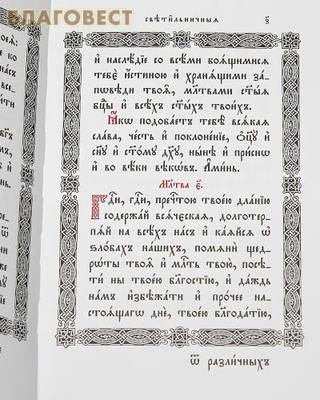 БЛАГОВЕСТ
blagovest-moskva.ru
свѣти́льничныѧ
и҆ наслѣ́дїе со всѣ́ми боѧ́щимисѧ
тебє̀ и҆́стиною и҆ хранѧ́щими за́-
пѡвѣди твоѧ̑, мл҃твами ст҃ы́ѧ
бц҃ы и҆ всѣ́хъ ст҃ы́хъ твои́хъ.
Ꙗ҆́кѡ подоба́етъ тебѣ̀ всѧ́каѧ
сла́ва, че́сть и҆ поклоне́нїе, ѻ҆ц҃ꙋ̀ и҆
сн҃ꙋ и҆ ст҃о́мꙋ дх҃ꙋ, ны́нѣ и҆ при́снѡ
и҆ во вѣ́ки вѣкѡ́въ. А҆ми́нь.
Мл҃тва є҃.
Гдⷭ҇и, гдⷭ҇и, пречⷭ҇тою твое́ю дла́нїю
содержа́й всѧ́чєскаѧ, долготер-
пѧ́й на всѣ́хъ на́съ и҆ ка́ѧйсѧ ѡ҆
ѕло́бахъ на́шихъ, помѧнѝ щед-
рѡ́ты твоѧ̑ и҆ млⷭ҇ть твою̀, посѣ-
тѝ ны̀ твое́ю бл҃гостїю, и҆ да́ждь
на́мъ и҆збѣжа́ти и҆ про́чее на-
стоѧ́щагѡ днѐ, твое́ю бл҃года́тїю,
ѿ разли́чныхъ